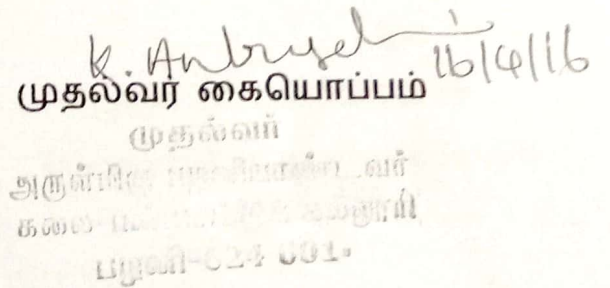 K. Anbuselvi 16/4/16
முதல்வர் கையொப்பம்
முதல்வர்
அருள்மிகு வர்
கலை கல்லூரி
பழனி-624 601.